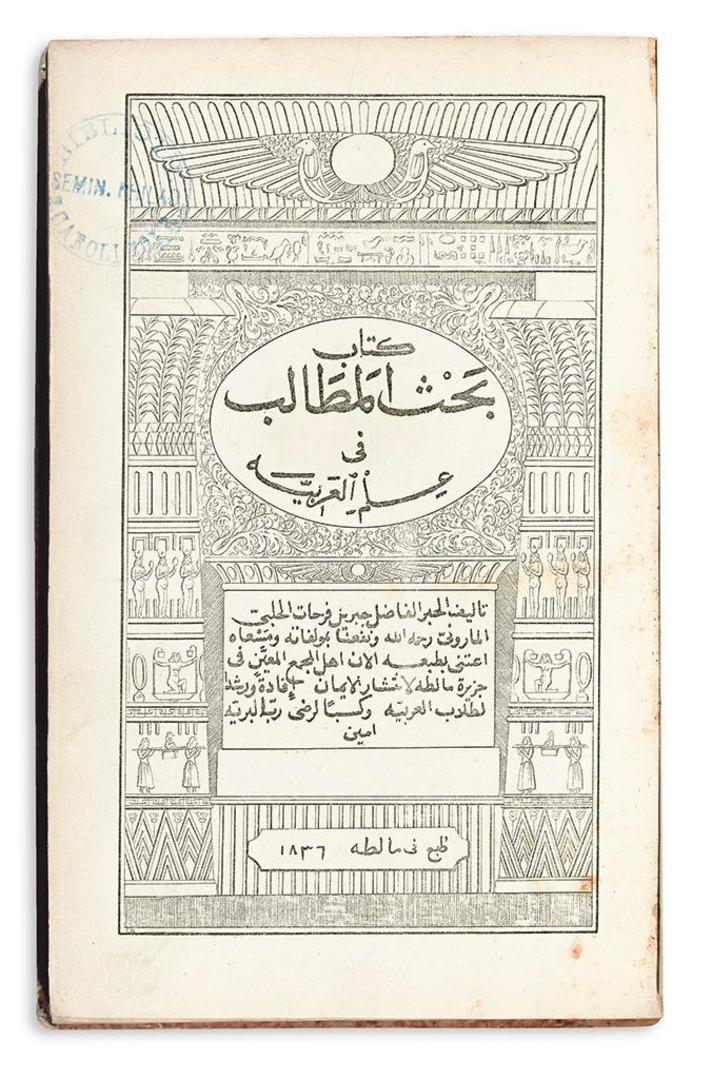 كتاب
بَحْثُ المَطَالب
فى
عِلْمِ العَرَبِيّه
تاليف الحبر الفاضل جبريل فرحات الحلبىّ
المارونىّ رحمه الله ونفعنا بمولفاته ومَسْعاه
اعتنى بطبعه الان اهل المجمع المعيَّن فى
جزيرة مالطه لانتشار الايمان إفادةً ورشدا
لطلاب العربيّه وكسبًا لرضى ربّ البريّه
امين
طبع فى مالطه ١٨٣٦
SEMIN.